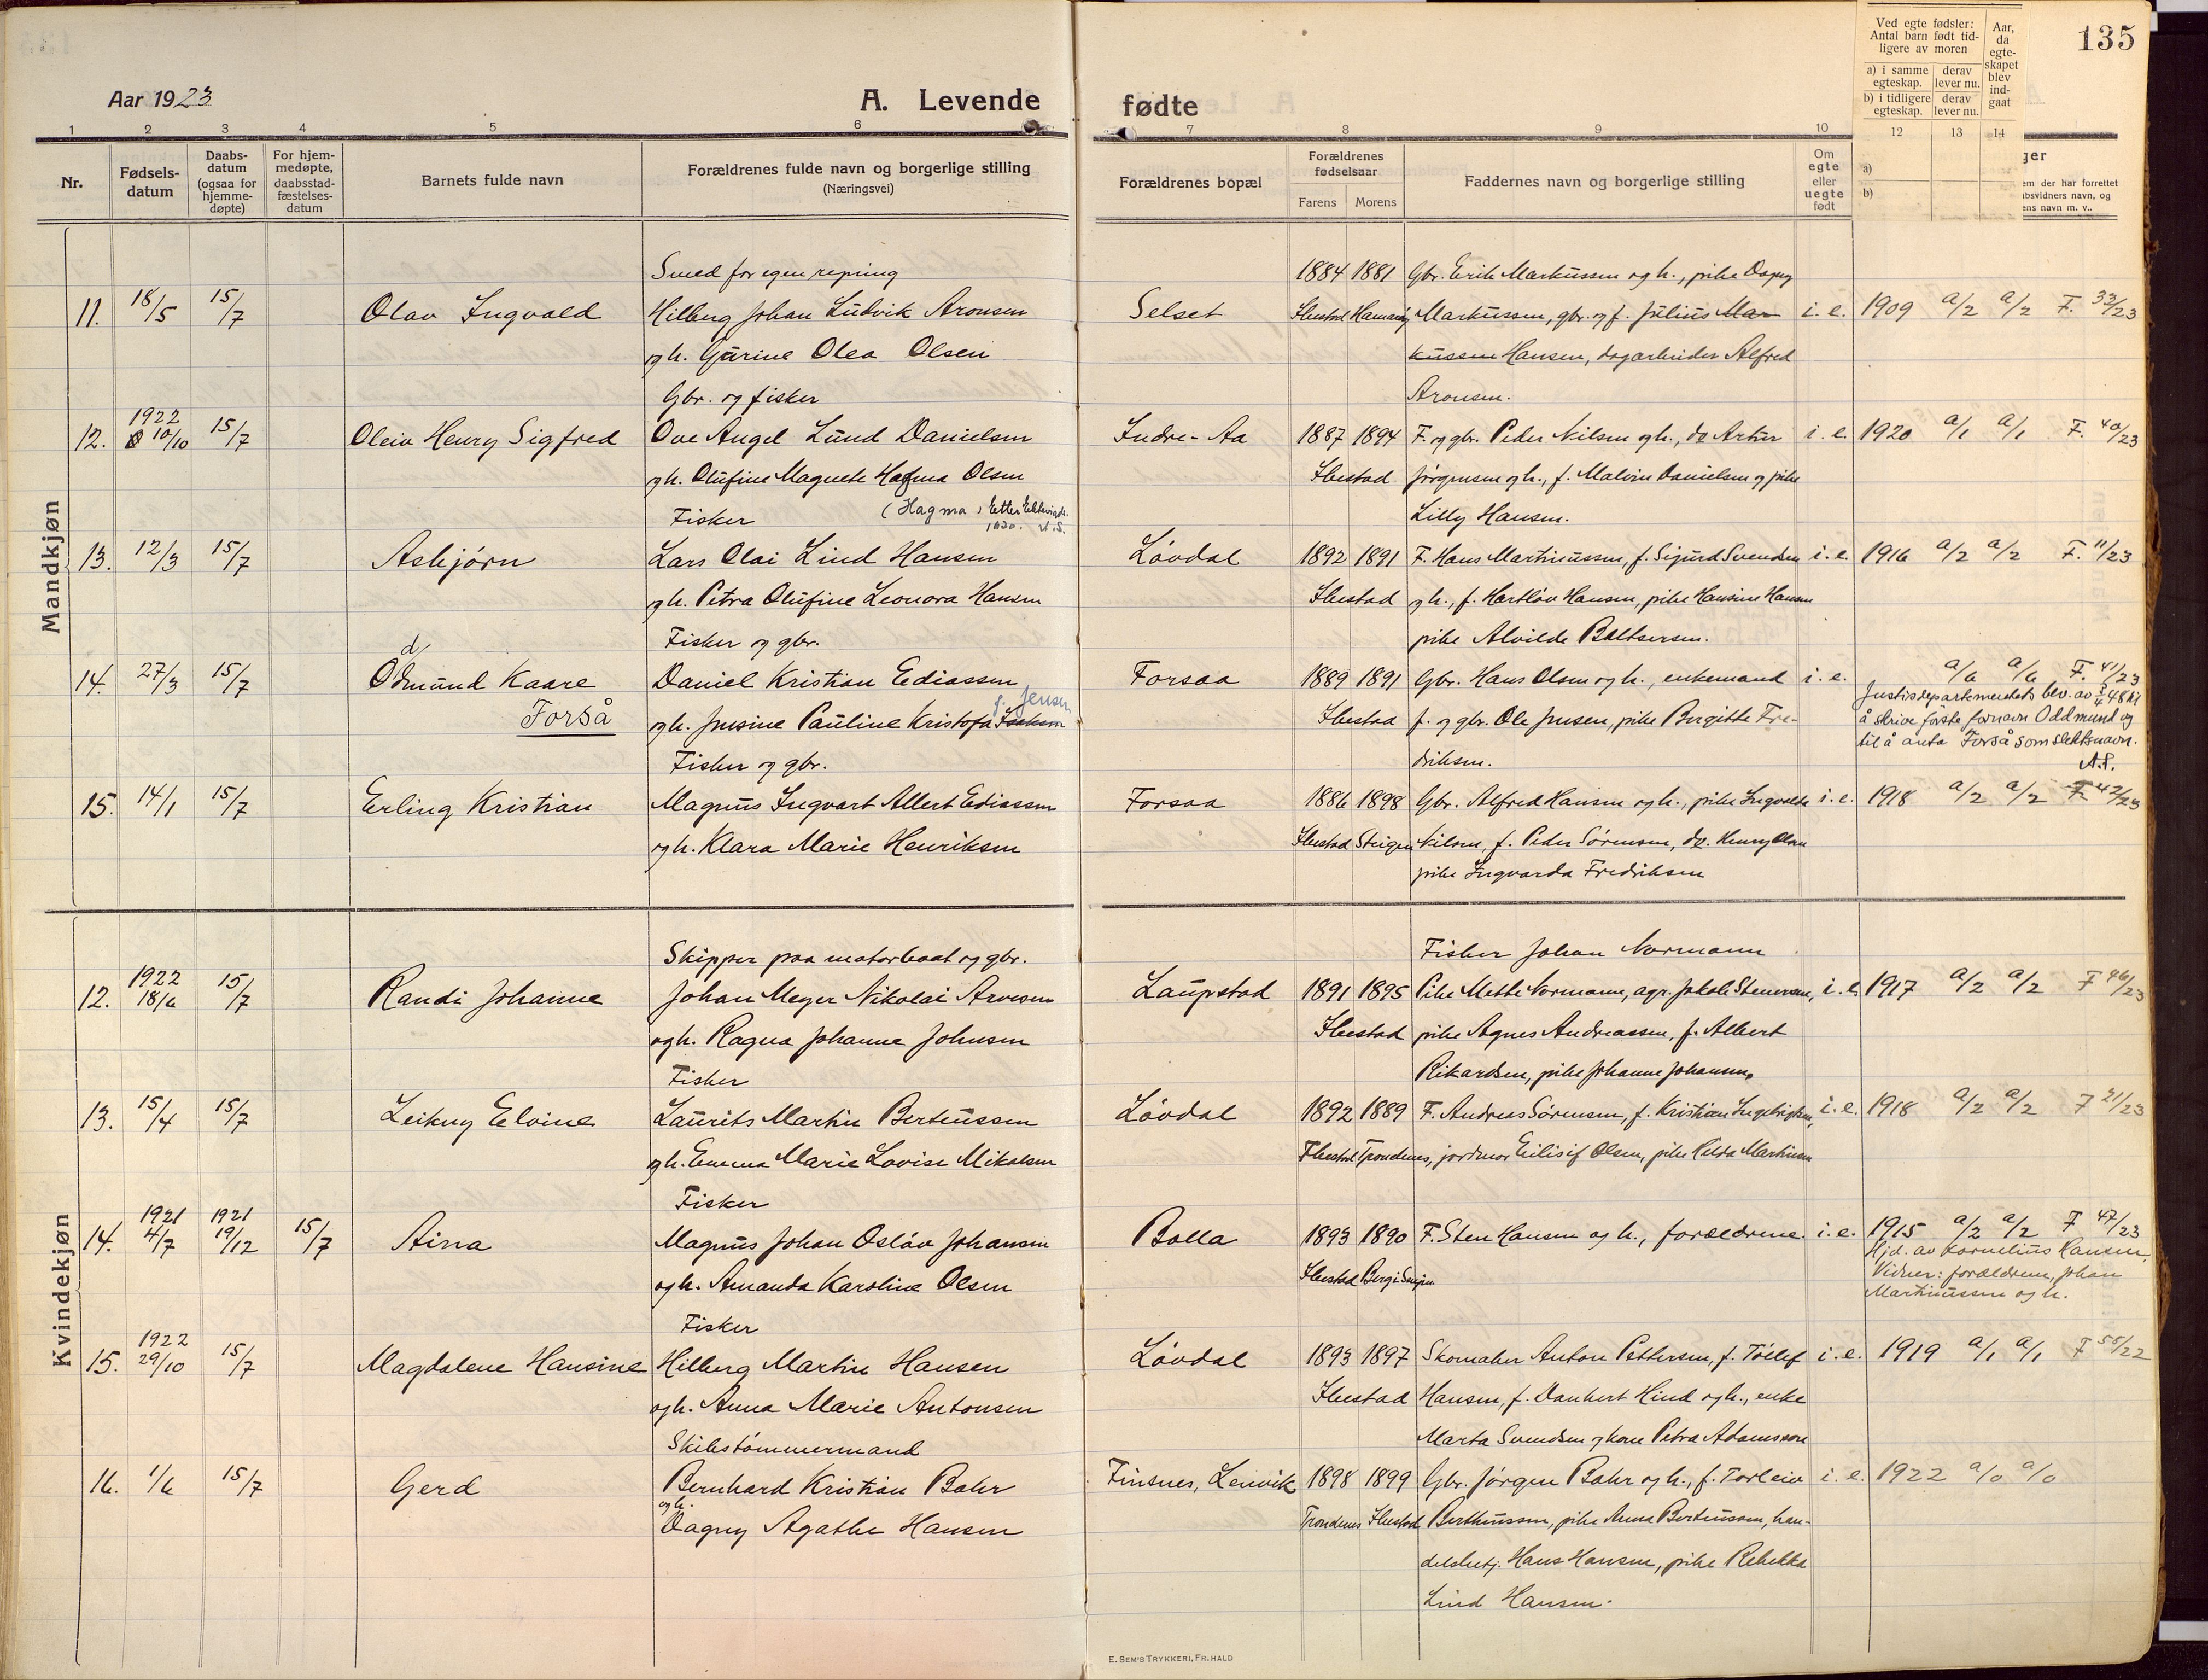 135
Aar 1923
A. Levende fødte
1 2 3 4 5 6 7 8 9 10 12 13 14
Nr.
Fødsels-
datum
Daabs-
datum
(ogsaa for
hjemme-
døpte)
For hjem-
medøpte,
daabsstad-
fæstelses-
datum
Barnets fulde navn
Forældrenes fulde navn og borgerlige stilling
(Næringsvei)
Forældrenes bopæl
Forældrenes
fødselsaar
Farens Morens
Faddernes navn og borgerlige stilling
Om
egte
eller
uegte
født
Ved egte fødsler:
Antal barn født tid-
ligere av moren
a) i samme
egteskap.
derav
lever nu.
b) i tidligere
egteskap.
derav
lever nu.
Aar,
da
egte-
skapet
blev
ind-
gaat
a)
b)
ger
em der har forrettet
absvidners navn, og
ens navn m. v..
Mandkjøn
11. 18/5 15/7 Olav Ingvald
Smed for egen regning
Hilberg Johan Ludvik Aronsen
og h. Gurine Olea Olsen
Selset
1884 1881
Ibestad Hamarøy
Gbr. Erik Markussen og h., pike Dagny
Markussen, gbr. og f. Julius Mar
kussen Hansen, dagarbeider Alfred
Aronsen.
i. e. 1909 a/2 a/2 F. 33/23
12. 1922 10/10 15/7 Oleiv Henry Sigfred
Gbr. og fisker
Ove Angel Lund Danielsen
og h. Olufine Magnete Hagma Olsen
(Hagma)
Indre-Aa
1887 1894
Ibestad
F. og gbr. Peder Nilsen og h., do Artur
Jørgensen og h., f. Malvin Danielsen og pike
Lilly Hansen.
i. e. 1920 a/1 a/1 F. 40/23
13. 12/3 15/7 Asbjørn
Fisker
Lars Olai Lind Hansen
og h. Petra Olufine Leonora Hansen
Løvdal
1892 1891
Ibestad
F. Hans Martinussen, f. Sigurd Svendsen
og h., f. Hartløv Hansen, pike Hansine Hansen
pike Alvilde Baltsersen.
i. e. 1916 a/2 a/2 F. 11/23
14. 27/3 15/7 Odmund Kaare
d
Forså
Fisker og gbr.
Daniel Kristian Ediassen
f. Jensen
og h. Jensine Pauline Kristofa Isaksen
Forsaa
1889 1891
Ibestad
Gbr. Hans Olsen og h., enkemand
f. og gbr. Ole Jensen, pike Bergitte Fre-
driksen.
i. e. a/6 a/6 F. 41/23
Justisdepartementets bev. av 5/4 48 til
å skrive første fornavn Oddmund og
til å anta Forså som slektsnavn.
A.S.
15. 14/1 15/7 Erling Kristian
Fisker og gbr.
Magnus Ingvart Albert Ediassen
og h. Klara Marie Henriksen
Forsaa
1886 1898
Ibestad Steigen
Gbr. Alfred Hansen og h., pike Ingvalda
Nilsen, f. Peder Sørensen, do. Henry Olsen
pike Ingvarda Fredriksen
i. e. 1918 a/2 a/2 F 42/23
Kvindekjøn
12. 1922 18/6 15/7 Randi Johanne
Skipper paa motorbaat og gbr.
Johan Meyer Nikolai Arnesen
og h. Ragna Johanne Johnsen
Laupstad
1891 1895
Ibestad
Fisker Johan Normann
Pike Mette Normann, agr. Jakob Stenersen,
pike Agnes Andreassen, f. Albert
Rikardsen, pike Johanne Johansen.
i. e. 1917 a/2 a/2 F 46/23
13. 15/4 15/7 Leikny Elvine
Fisker
Laurits Martin Berteussen
og h. Emma Marie Lovise Mikalsen
Løvdal
1892 1889
Ibestad Trondenes
F. Andreas Sørensen, f. Kristian Ingebrigtsen,
jordmor Eilisif Olsen, pike Hilda Martinsen
i. e. 1918 a/2 a/2 F 21/23
14. 1921 4/7 1921 19/12 15/7 Aina
Fisker
Magnus Johan Osláv Johansen
og h. Amanda Karoline Olsen
Bolla
1893 1890
Ibestad Berg i Senjen
F. Sten Hansen og h., forældrene.
i. e. 1915 a/2 a/2 F 47/23
Hjd. av Kornelius Hansen,
Vidner: forældrene, Johan
Martinussen og h.
15. 1922 29/10 15/7 Magdalene Hansine
Fisker
Hilberg Martin Hansen
og h. Anna Marie Antonsen
Løvdal
1893 1897
Ibestad
Skomaker Anton Pettersen, f. Tollef
Hansen, f. Dankert Hind og h., enke
Marta Svendsen og kone Petra Adamsson
i. e. 1919 a/1 a/1 F 58/22
16. 1/6 15/7 Gerd
Skibstømmermand
Bernhard Kristian Bahr
og h.
Dagny Agathe Hansen
Finsnes, Lenvik
1898 1899
Trondenes Ibestad
Gbr. Jørgen Bahr og h., f. Torleiv
Berthinussen, pike Anna Berteussen, han-
delsbetj. Hans Hansen, pike Rebekka
Lind Hansen.
i. e. 1922 a/0 a/0
E. SEM'S TRYKKERI, FR.HALD